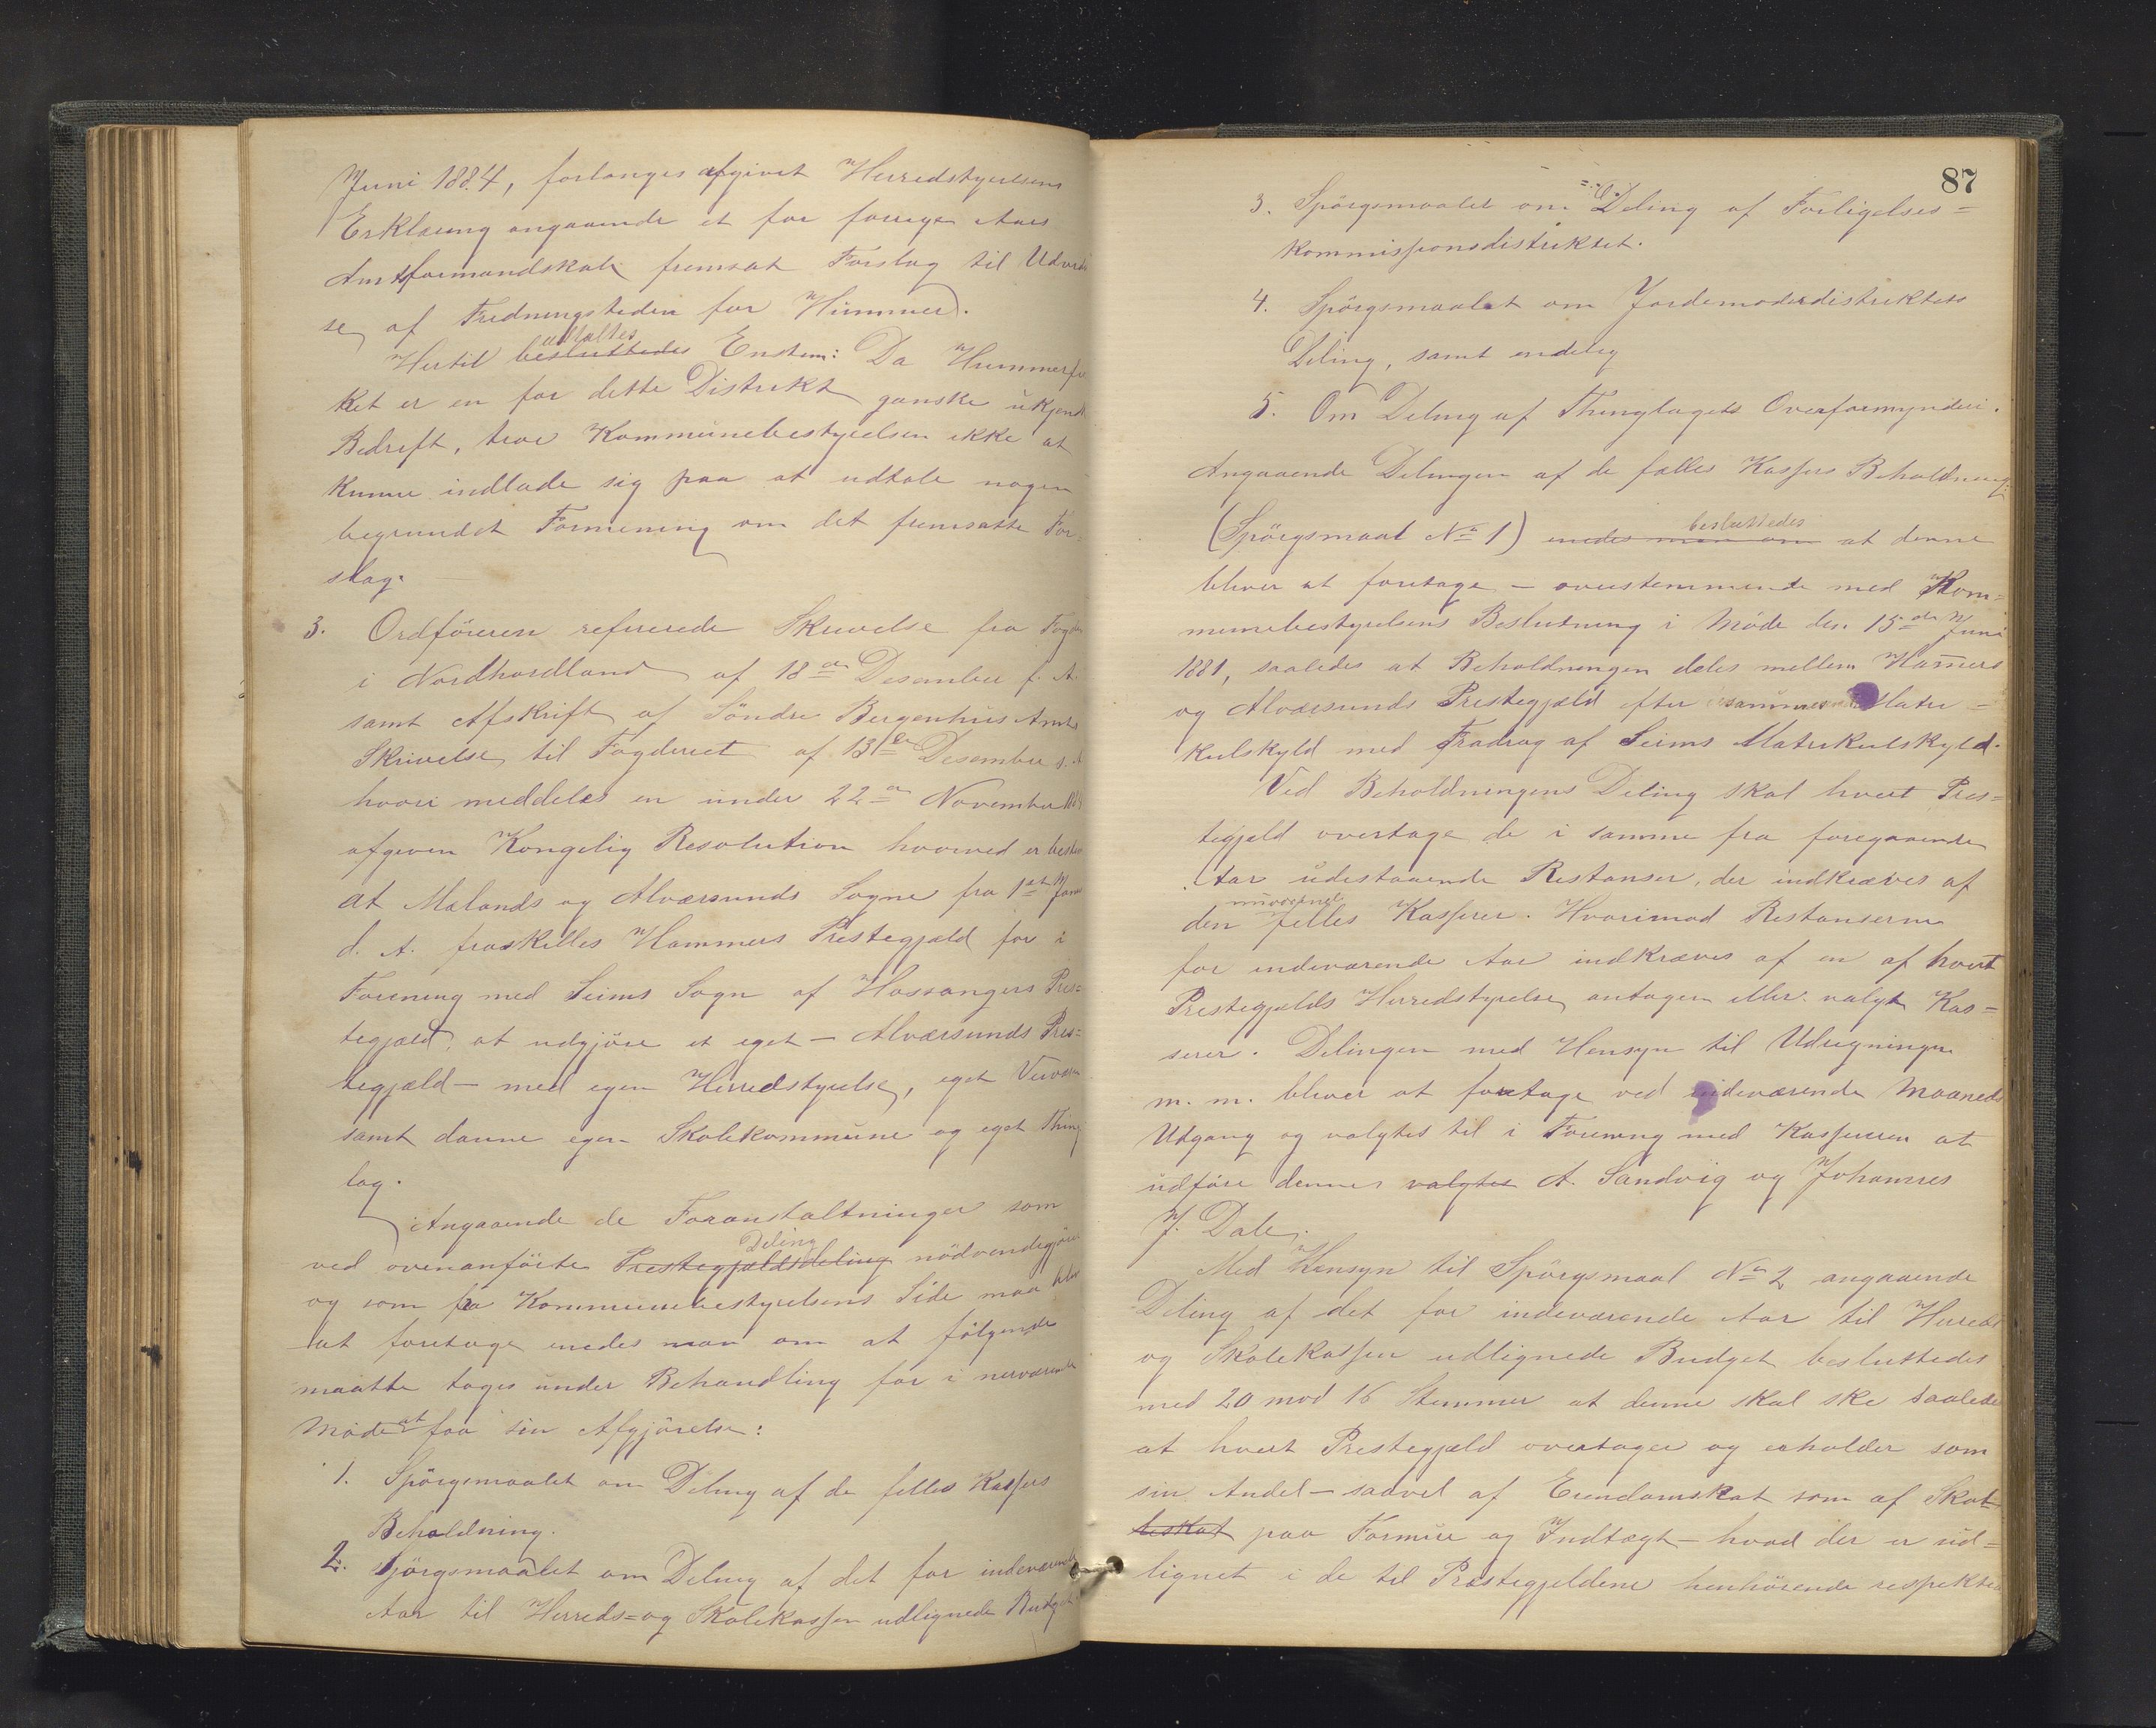 Juni 1884, forlanges afgivet Herredstyrelsens
Erklæring angaaende et for forrige Aars
Amtsformandskab fremsat Forslag til Udvidel
se af Fredningstiden for Hummer.
udtaltes
Hertil besluttedes Enstem: Da Hummerfi
ket er en for dette Distrikt ganske ukjendt
Bedrift, tror Kommunebestyrelsen ikke at
kunne indlade sig paa at udtale nogen
begrundet Formening om det fremsatte For-
slag.
3. Ordføreren refererede Skrivelse fra Fogden
i Nordhordland af 18de Desember f. A.
samt Afskrift af Søndre Bergenhus Amts
Skrivelse til Fogderiet af 13de Desember s. A
hvori meddeles en under 22de November 1884
afgiven Kongelig Resolution hvorved er bestem
at Mælands og Alværsunds Sogne fra 1ste Janu
d. A. fraskilles Hammers Prestegjæld for i
Forening med Seims Sogn af Hossangers Pres=
tegjæld, at udgjøre et eget – Alværsunds Pres=
tegjæld – med egen Herredstyrelse, eget Værvæsen
samt danne egen Skolekommune og eget Thing
lag.
Angaaende de Foranstaltninger som
Deling
ved ovenanførte Prestegjældsdeling nødvendiggjøres
og som fra Kommunebestyrelsens Side maa blive
at foretage enedes man om at følgende
maatte tages under Behandling for i nærværende
Møde at faa sin Afgjørelse:
1. Spørgsmaalet om Deling af de felles Kassers
Beholdning.
2. Spørgsmaalet om Deling af det for indeværende
Aar til Herreds= og Skolekassen udlignede Budget
87
3. Spørgsmaalet om Deling af Forligelses=
kommissionsdistriktet.
4. Spørgsmaalet om Jordemoderdistriktets
Deling, samt endelig
5. Om Deling af Thinglagets Overformynderi.
Angaaende Delingen af de fælles Kassers Beholdning
besluttedes
(Spørgsmaal No 1) enedes man om at denne
bliver at foretage – overstemmende med Kom=
munebestyrelsens Beslutning i Møde den 15de Juni
1881, saaledes at Beholdningen deles mellem Hamers
og Alværsunds Prestegjæld efter sammes Matri-
kulskyld med Fradrag af Seims Matrikulskyld.
Ved Beholdningens Deling skal hvert Pres=
tegjæld overtage de i samme fra foregaaende
Aar udestaaende Restanser, der indkræves af
nuværende
den felles Kasserer. Hvorimod Restanserne
for indeværende Aar indkræves af en af hvert
Prestegjælds Herredstyrelse antagen eller valgt Kas=
serer. Delingen med Hensyn til Udregningen
m. m. bliver at foretage ved indeværende Maaneds
Udgang og valgtes til i Forening med Kassereren at
udføre dennes valgtes A. Sandvig og Johannes
J. Dale.
Med Hensyn til Spørgsmaal No 2 angaaende
Deling af det for indeværende Aar til Herreds
og Skolekassen udlignede Budget besluttedes
med 20 mod 16 Stemmer at denne skal ske saaledes
at hvert Prestegjæld overtager og erholder som
sin Andel – saavel af Eiendomskat som af Skat
teskat paa Formue og Indtægt – hvad der er ud=
lignet i de til Prestegjeldene henhørende respektive